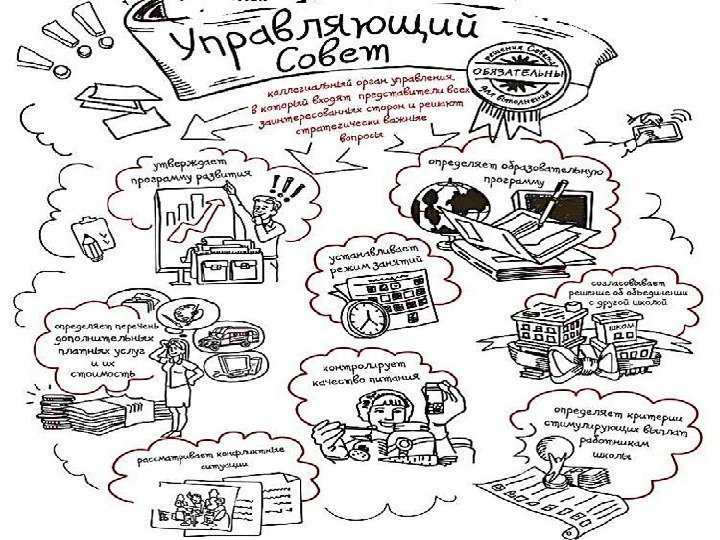 Управляющий
Совет
коллегиальный орган управления,
в который входят представители всех
заинтересованных сторон и решают
стратегически важные
вопросы
решения Совета
ОБЯЗАТЕЛЬНЫ
для выполнения
утверждает
программу развития
определяет образовательную
программу
устанавливает
режим занятий
согласовывает
решение об объединении
с другой школой
школа
определяет перечень
дополнительных
платных услуг
и их
стоимость
контролирует
качество питания
определяет критерии
стимулирующих выплат
работникам
школы
рассматривает конфликтные
ситуации